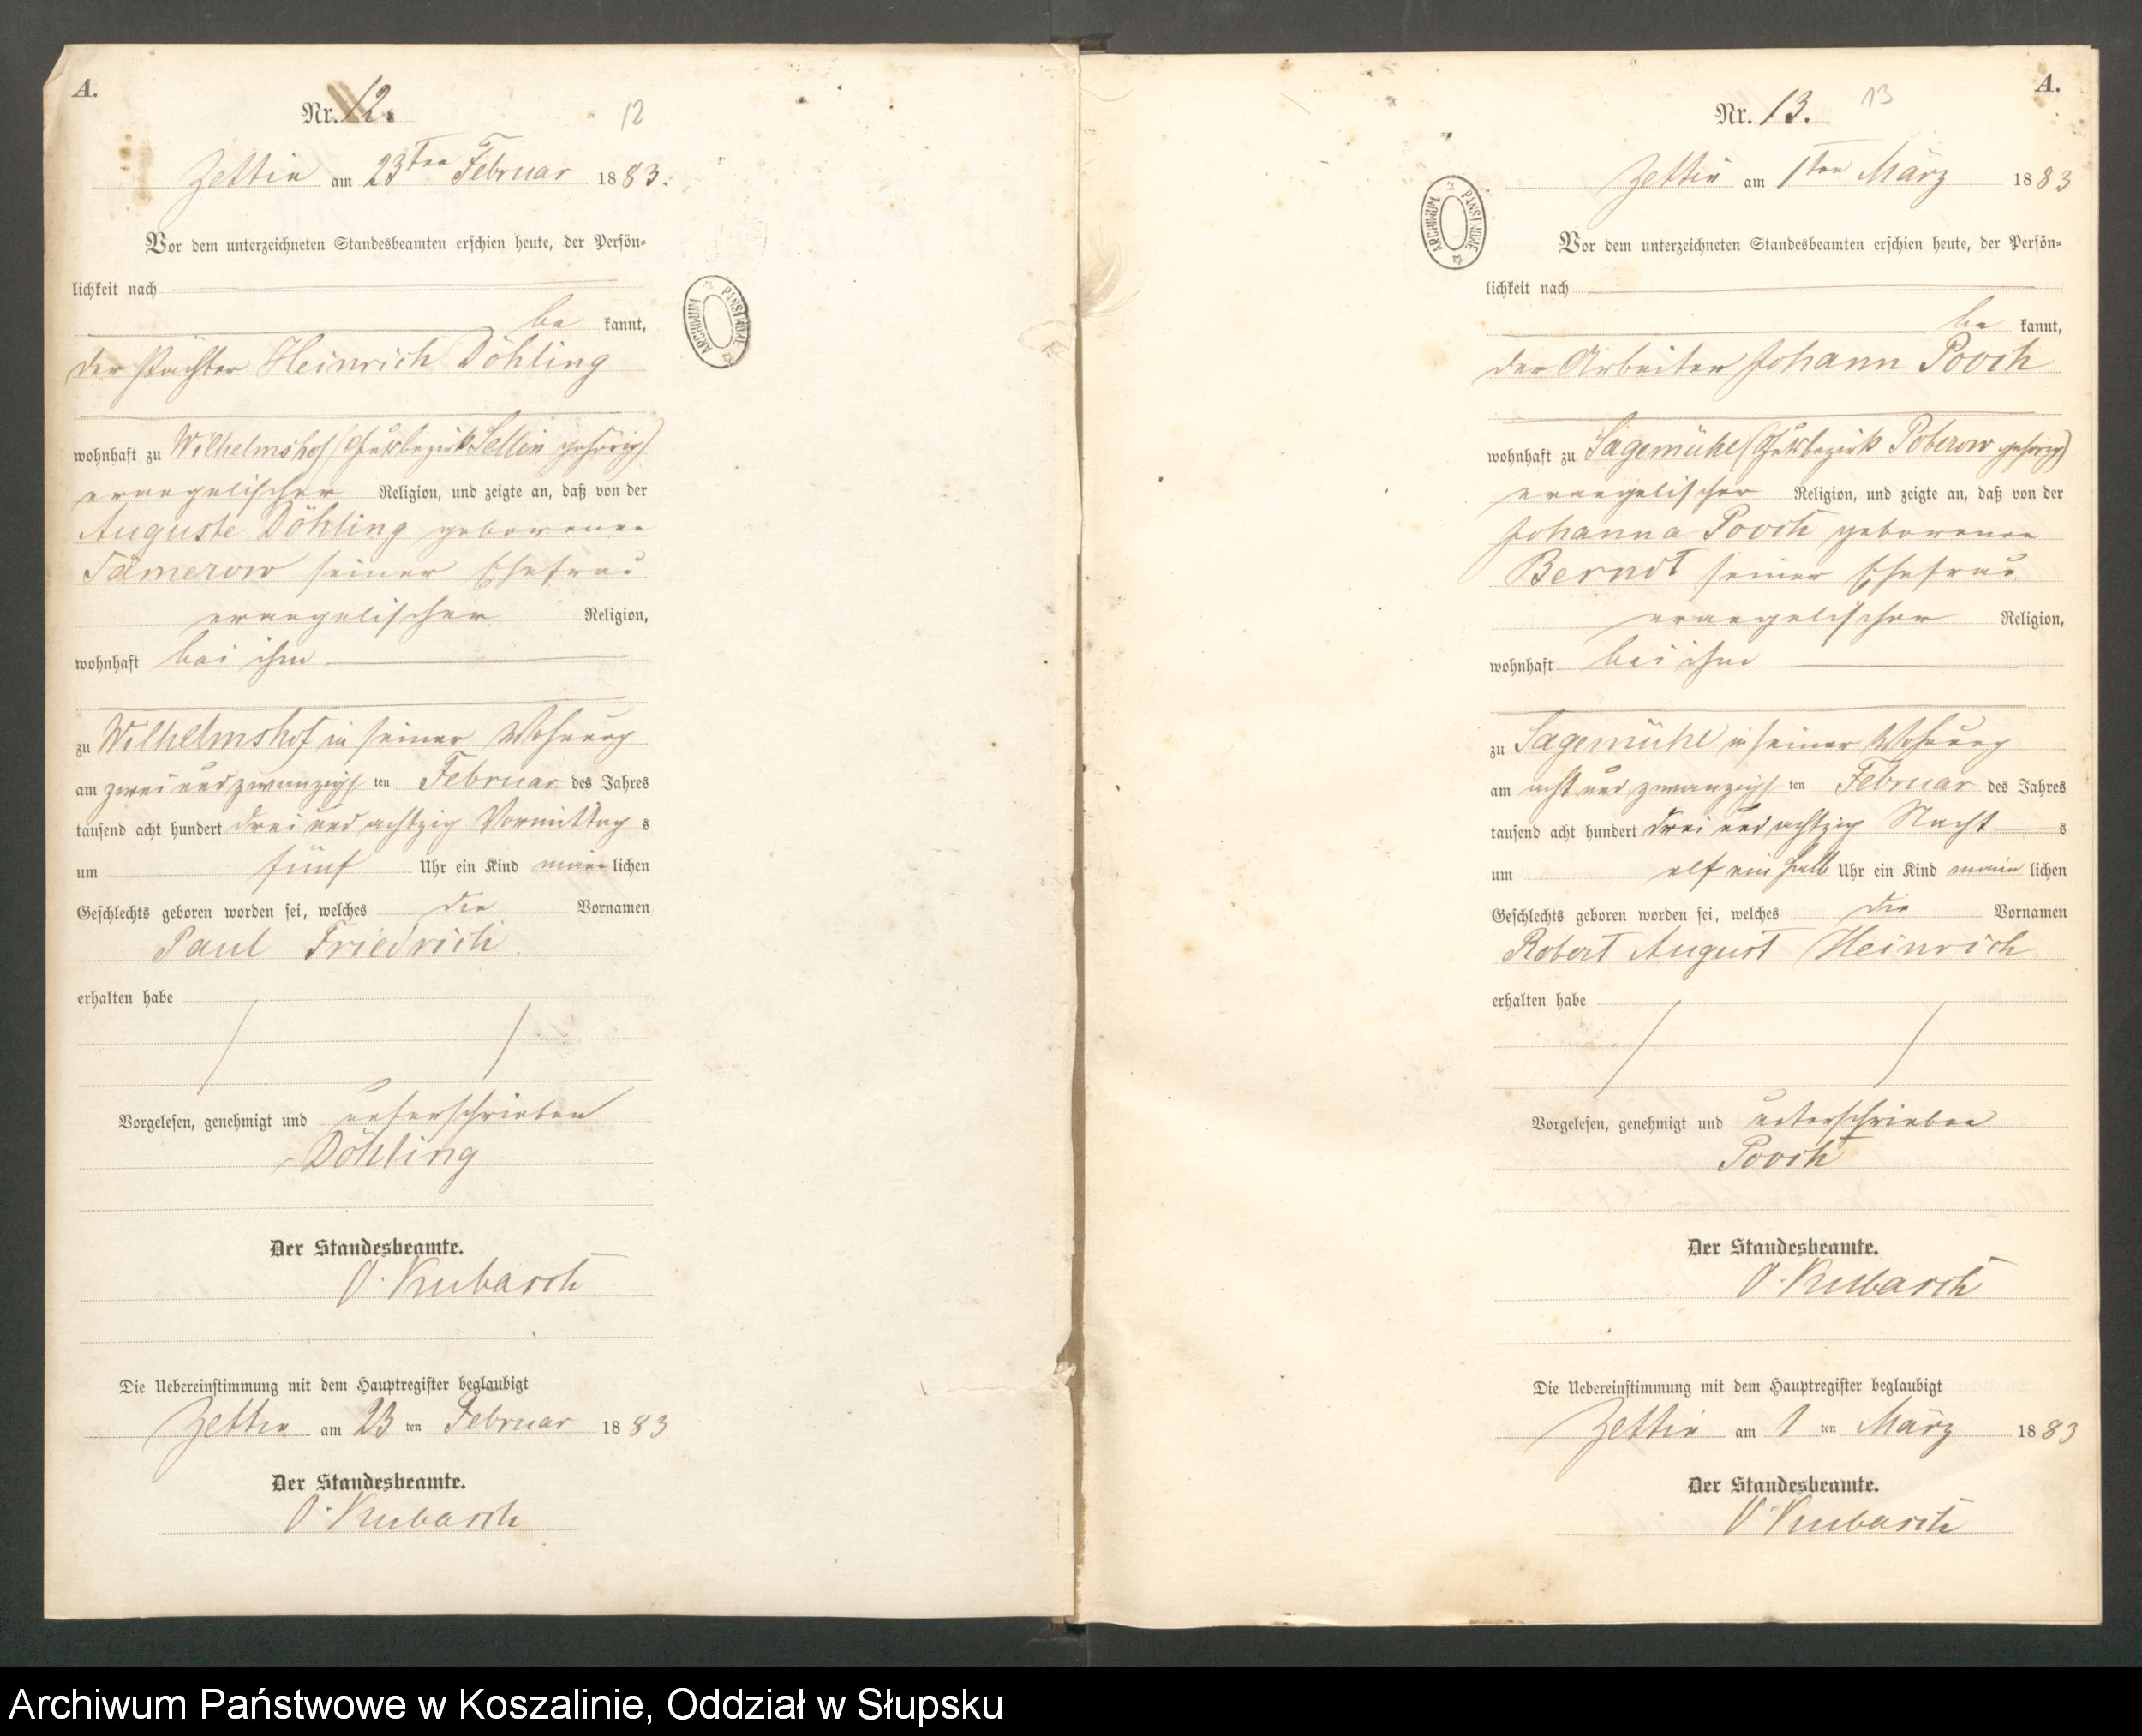 A.
Nr. 12.
12
Zettin am 23ten Februar 1883.
Vor dem unterzeichneten Standesbeamten erschien heute, der Persön-
lichkeit nach
be kannt,
der Pächter Heinrich Döhling
wohnhaft zu Wilhelmshof (Gutsbezirk Sellin gehörig)
evangelischer Religion, und zeigte an, daß von der
Auguste Döhling geborenen
Tämerow seiner Ehefrau
evangelischer Religion,
wohnhaft bei ihm
zu Wilhelmshof in seiner Wohnung
am zwei und zwanzigs ten Februar des Jahres
tausend acht hundert drei und achtzig Vormittag s
um fünf Uhr ein Kind männ lichen
Geschlechts geboren worden sei, welches die Vornamen
Paul Friedrich
erhalten habe
Vorgelesen, genehmigt und unterschrieben
Döhling
Der Standesbeamte.
O. Kubasch
Die Uebereinstimmung mit dem Hauptregister beglaubigt
Zettin am 23 ten Februar 1883
Der Standesbeamte.
O. Kubasch
ARCHIWUM PAŃSTWOWE
A.
Nr. 13.
13
Zettin am 1ten März 1883
Vor dem unterzeichneten Standesbeamten erschien heute, der Persön-
lichkeit nach
be kannt,
der Arbeiter Johann Pooch
wohnhaft zu Sagemühl (Gutsbezirk Poberow gehörig)
evangelischer Religion, und zeigte an, daß von der
Johanna Pooch geborenen
Berndt seiner Ehefrau
evangelischer Religion,
wohnhaft bei ihm
zu Sagemühl in seiner Wohnung
am acht und zwanzigs ten Februar des Jahres
tausend acht hundert drei und achtzig Nacht s
um elf ein halb Uhr ein Kind männ lichen
Geschlechts geboren worden sei, welches die Vornamen
Robert August Heinrich
erhalten habe
Vorgelesen, genehmigt und unterschrieben
Pooch
Der Standesbeamte.
O. Kubasch
Die Uebereinstimmung mit dem Hauptregister beglaubigt
Zettin am 1 ten März 1883
Der Standesbeamte.
O. Kubasch
ARCHIWUM PAŃSTWOWE
Archiwum Państwowe w Koszalinie, Oddział w Słupsku